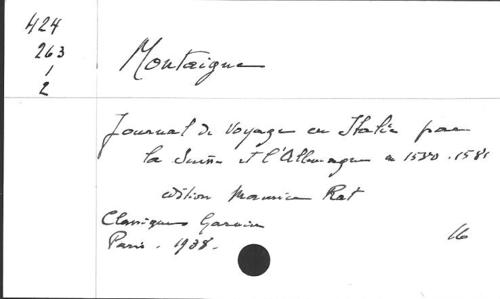 424
263
1
2
Montaigne
Journal de Voyage en Italie par
la Suisse et l'Allemagne en 1580-1581
édition Maurice Rat
Classiques Garnier
Paris - 1938.
16